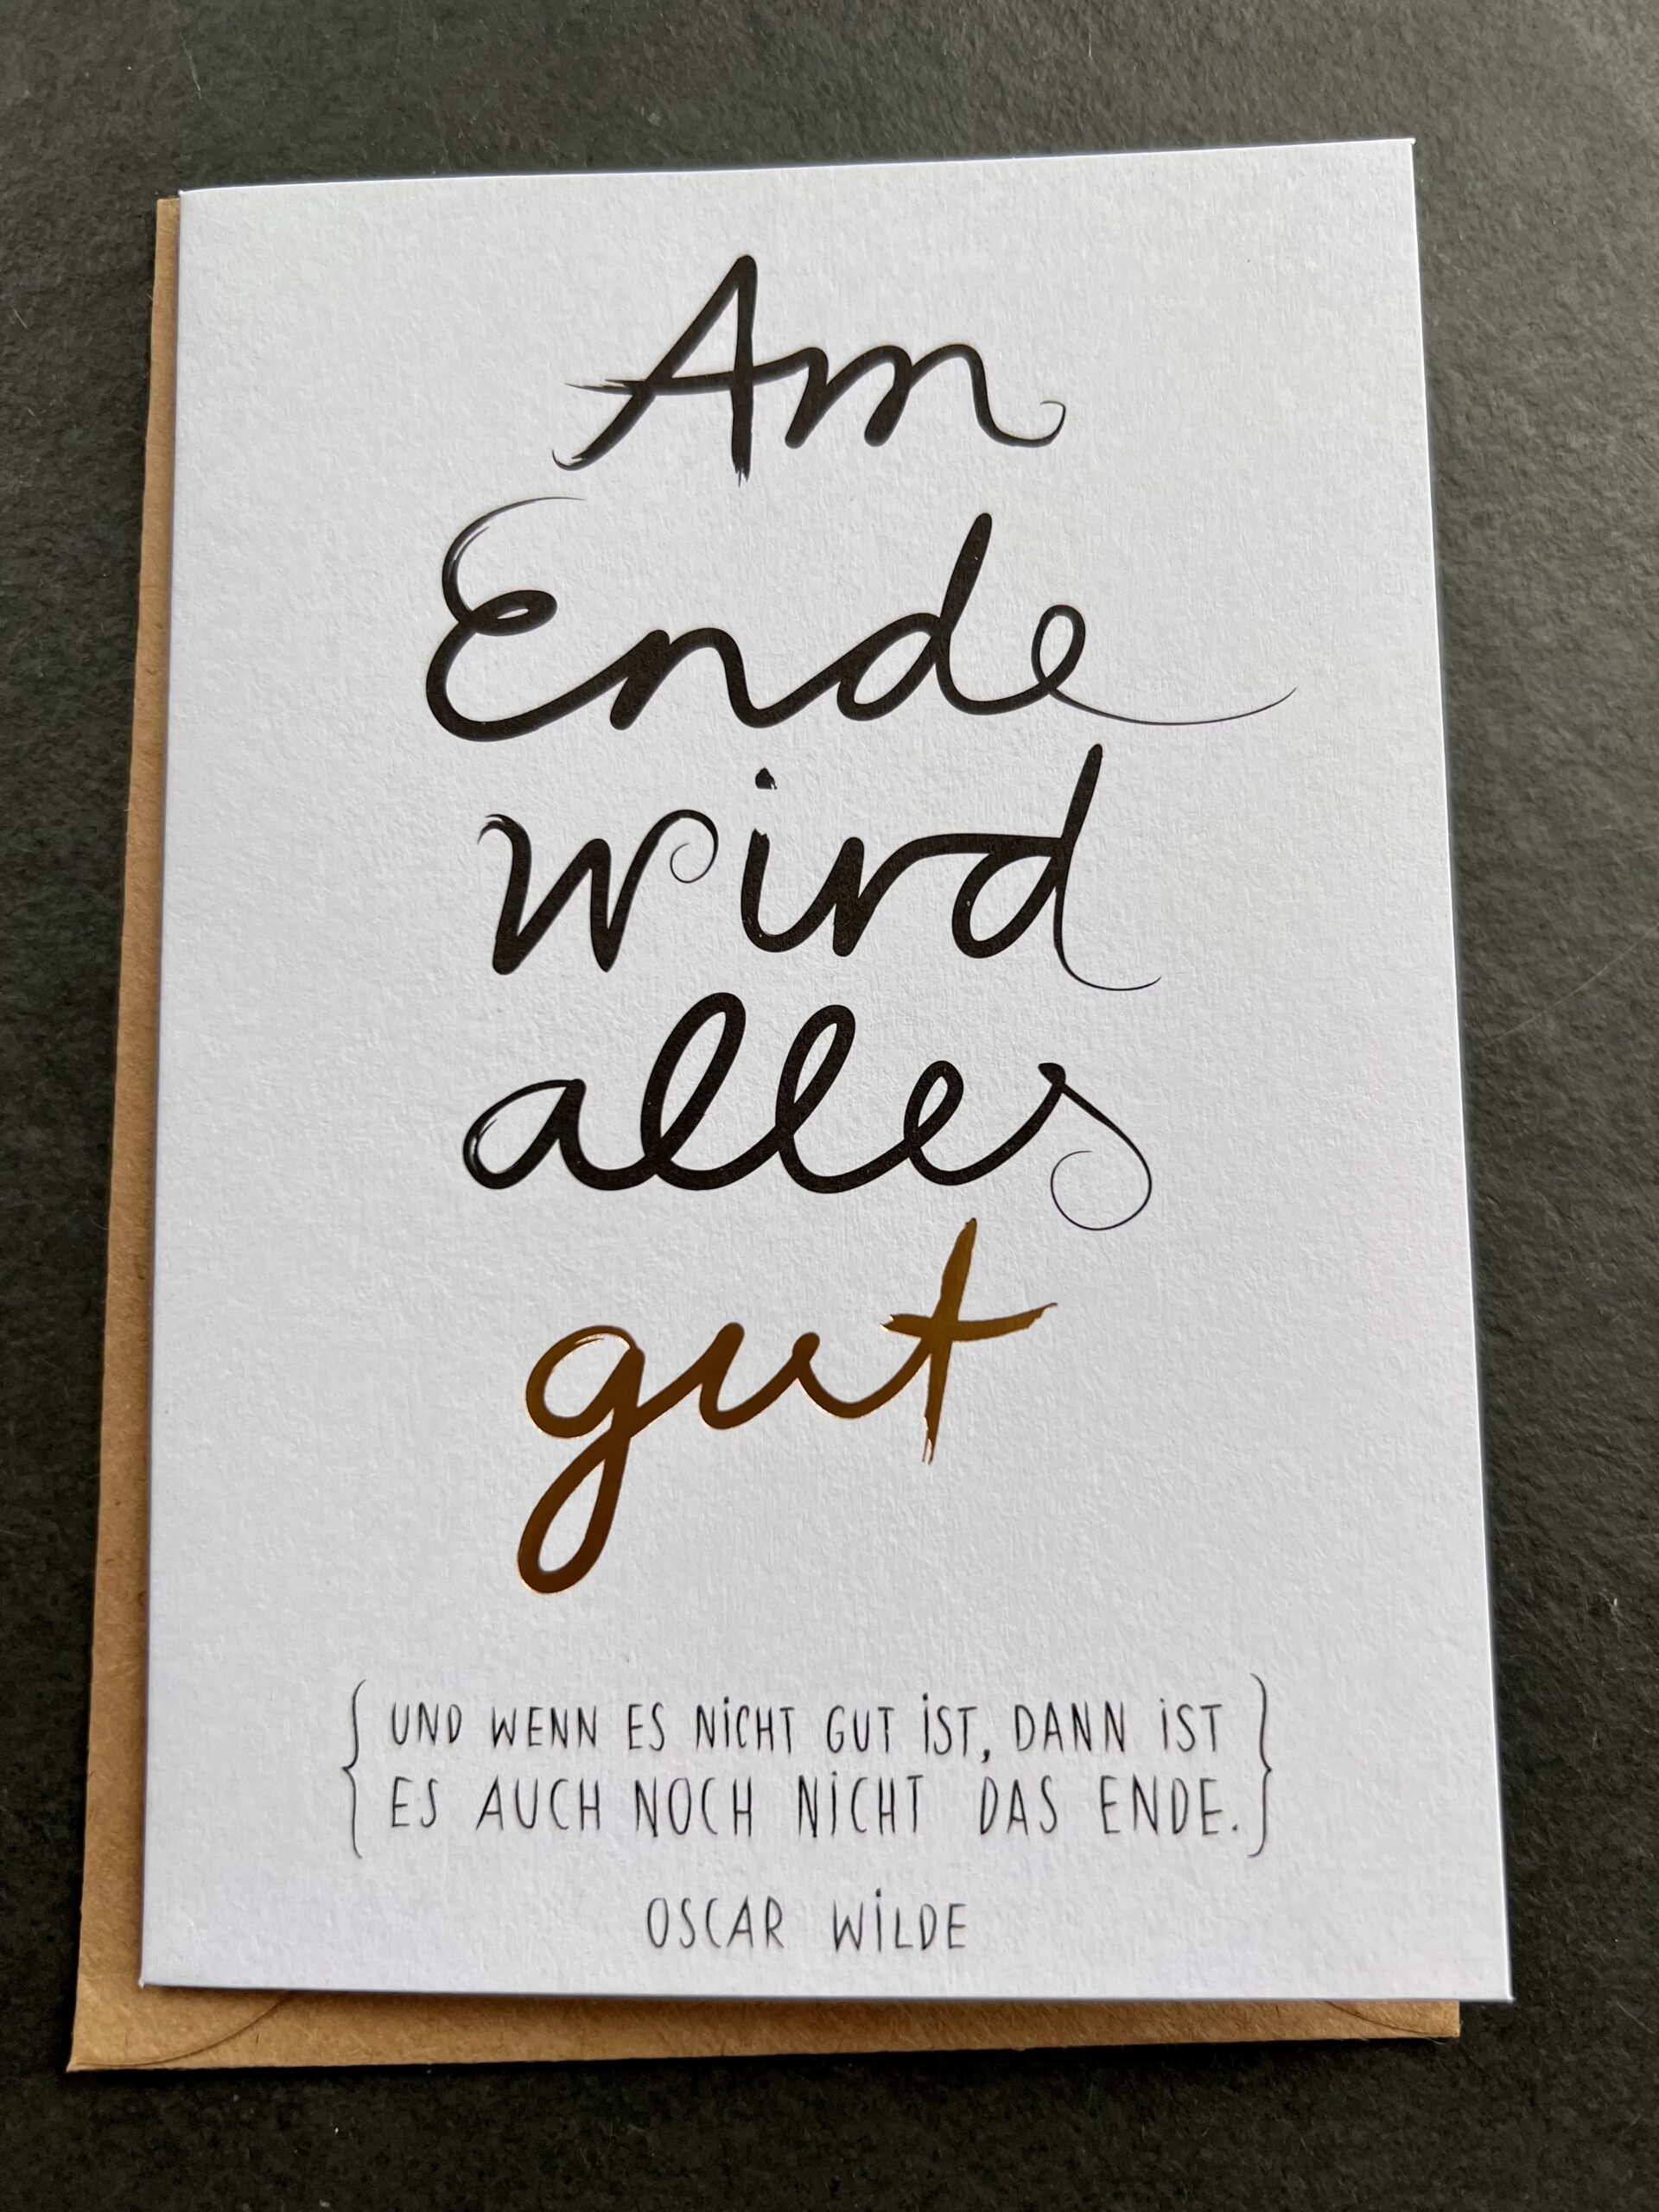 Am
Ende
wird
alles
gut
{ UND WENN ES NiCHT GUT iST, DANN iST
ES AUCH NOCH NiCHT DAS ENDE. }
OSCAR WiLDE